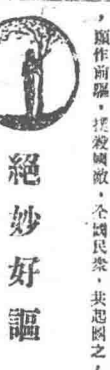 ，願作前驅，撲殺國敵，全國民衆，共起圖之，
絕妙好謳